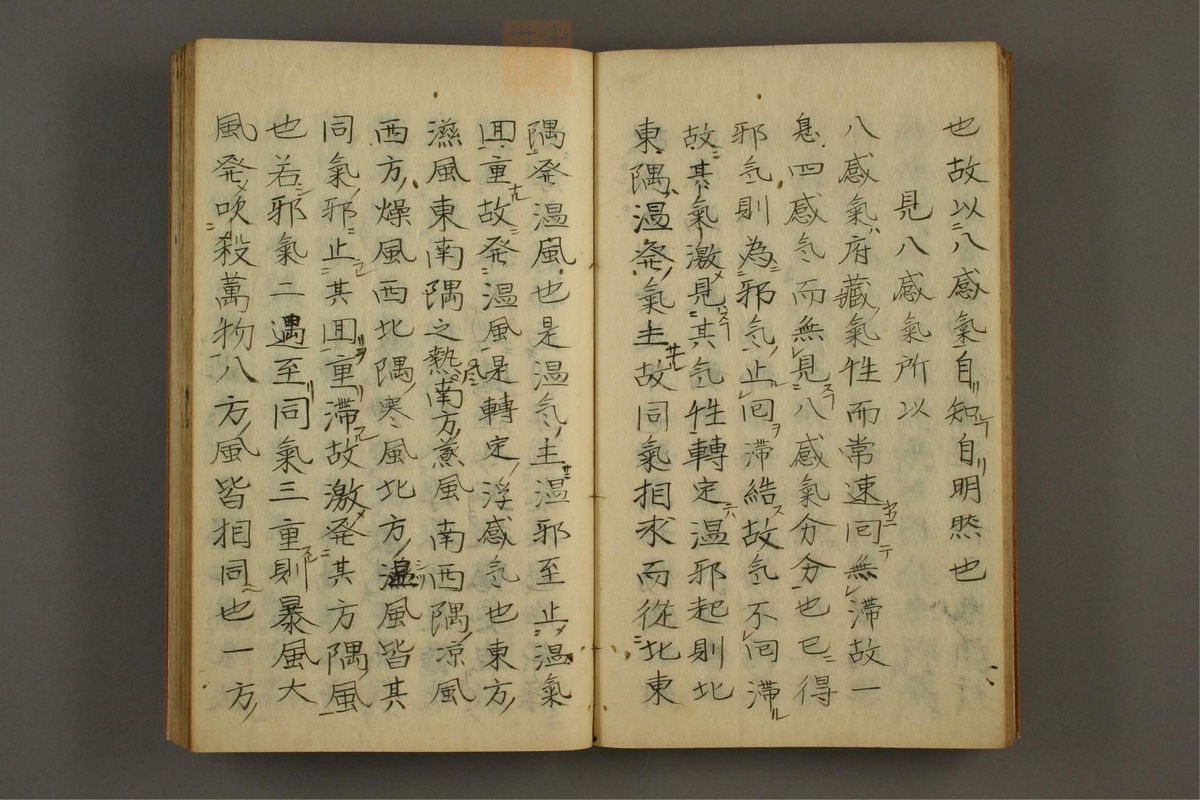 也故以八感氣自知自明然也
見八感氣所以
八感氣府藏氣性而常速回無滞故一
息四感气而無見八感氣分分也已得
邪气則為邪气止回滞結故气不回滞
故其氣激見其气性轉定温邪起則北
東隅温発氣主故同氣相求而從北東
隅発温風也是温气主温邪至止温氣
回重故発温風是轉定浮感气也東方
濕風東南隅之熱風南方蒸風南西隅涼風
西方燥風西北隅寒風北方風皆其
同氣邪止其回重滞故激発其方隅風
也若邪氣二遇至同氣三重則暴風大
風発吹殺萬物八方風皆相同也一方